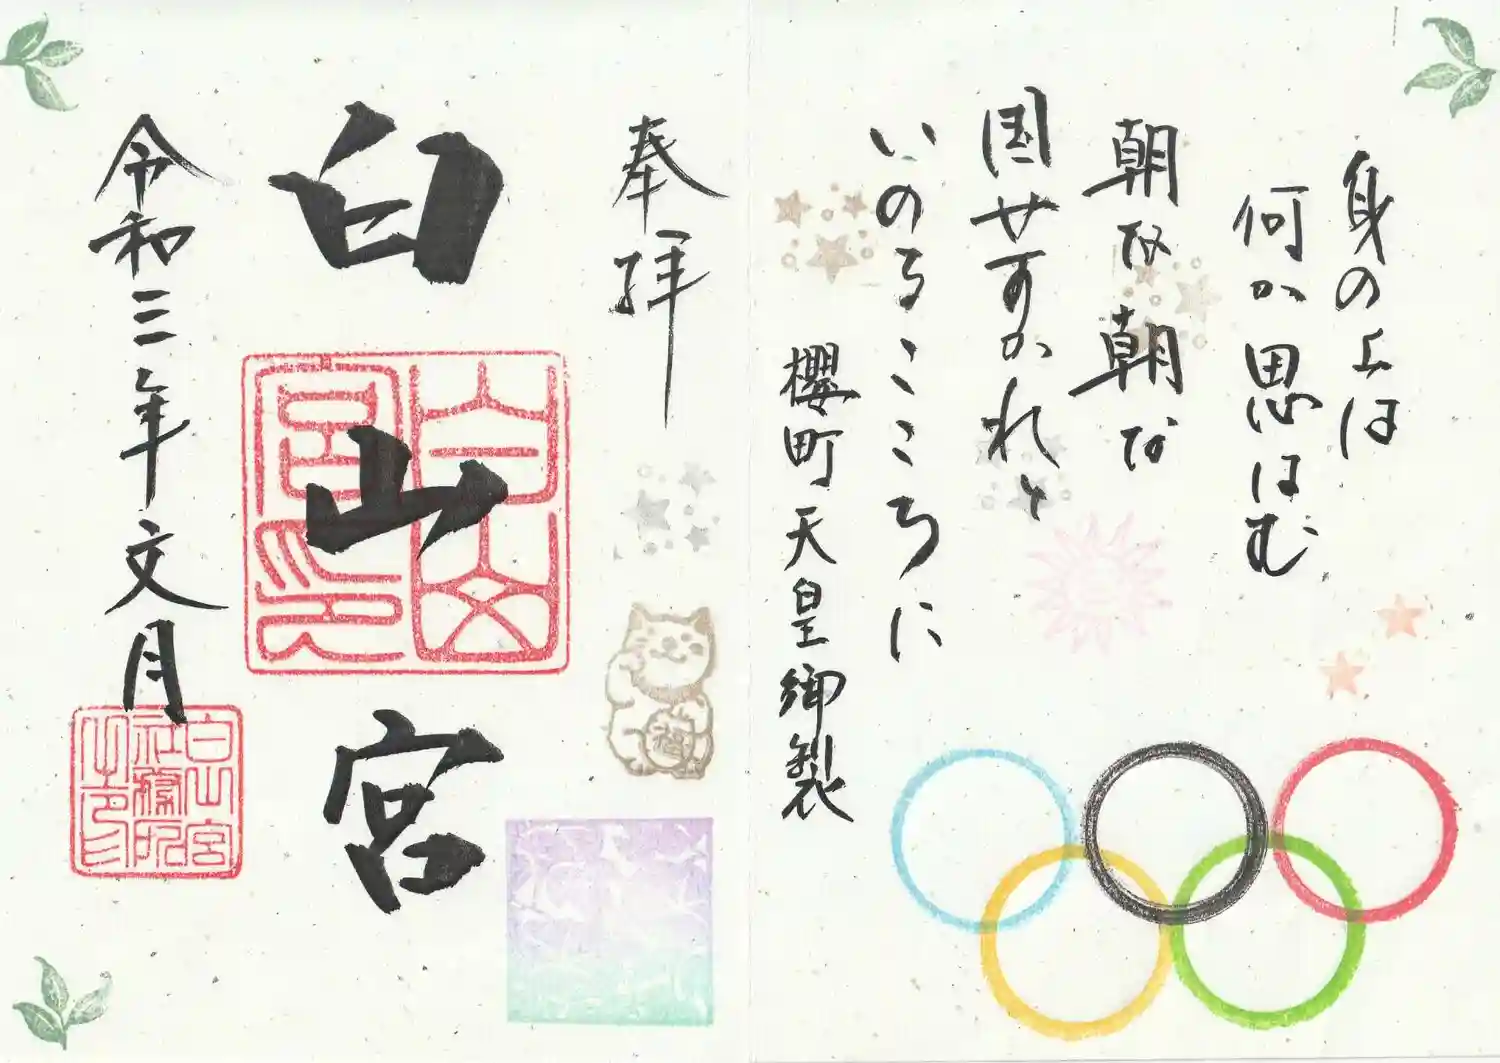 身の上は
何か思はむ
朝な朝な
国やすかれと
いのるこころに
櫻町天皇御製
奉拝
白山宮
白山宮印
福
令和三年文月
白山宮
社務所
之印